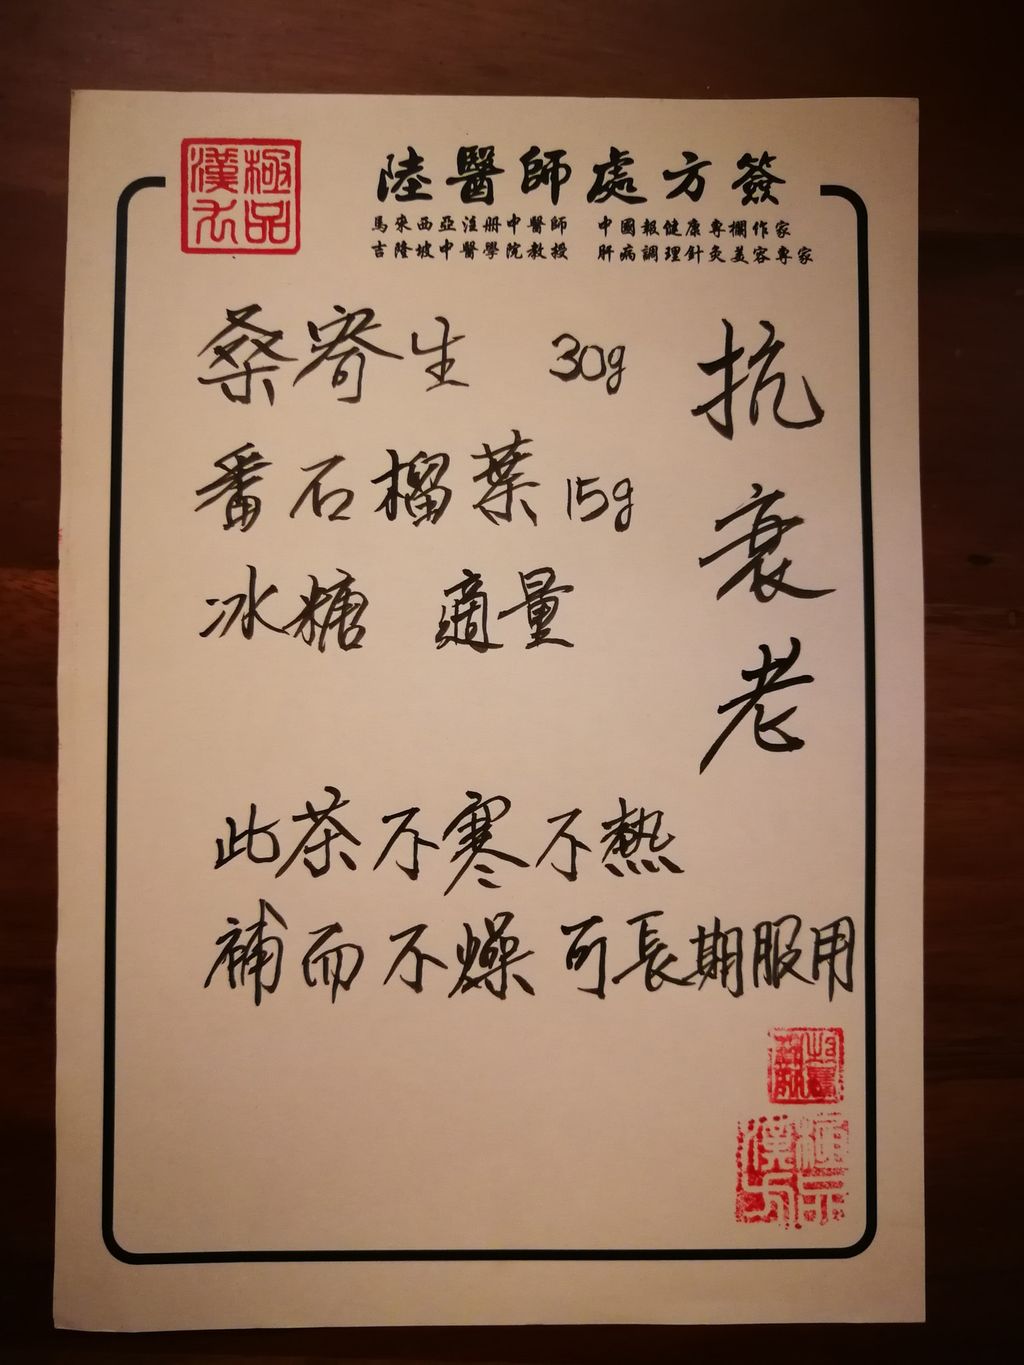 極品漢方
陸醫師處方簽
馬來西亞注册中醫師 中國報健康專欄作家
吉隆坡中醫學院教授 肝病調理針灸美容專家
抗衰老
桑寄生 30g
番石榴葉 15g
冰糖 適量
此茶不寒不熱
補而不燥 可長期服用
極品漢方